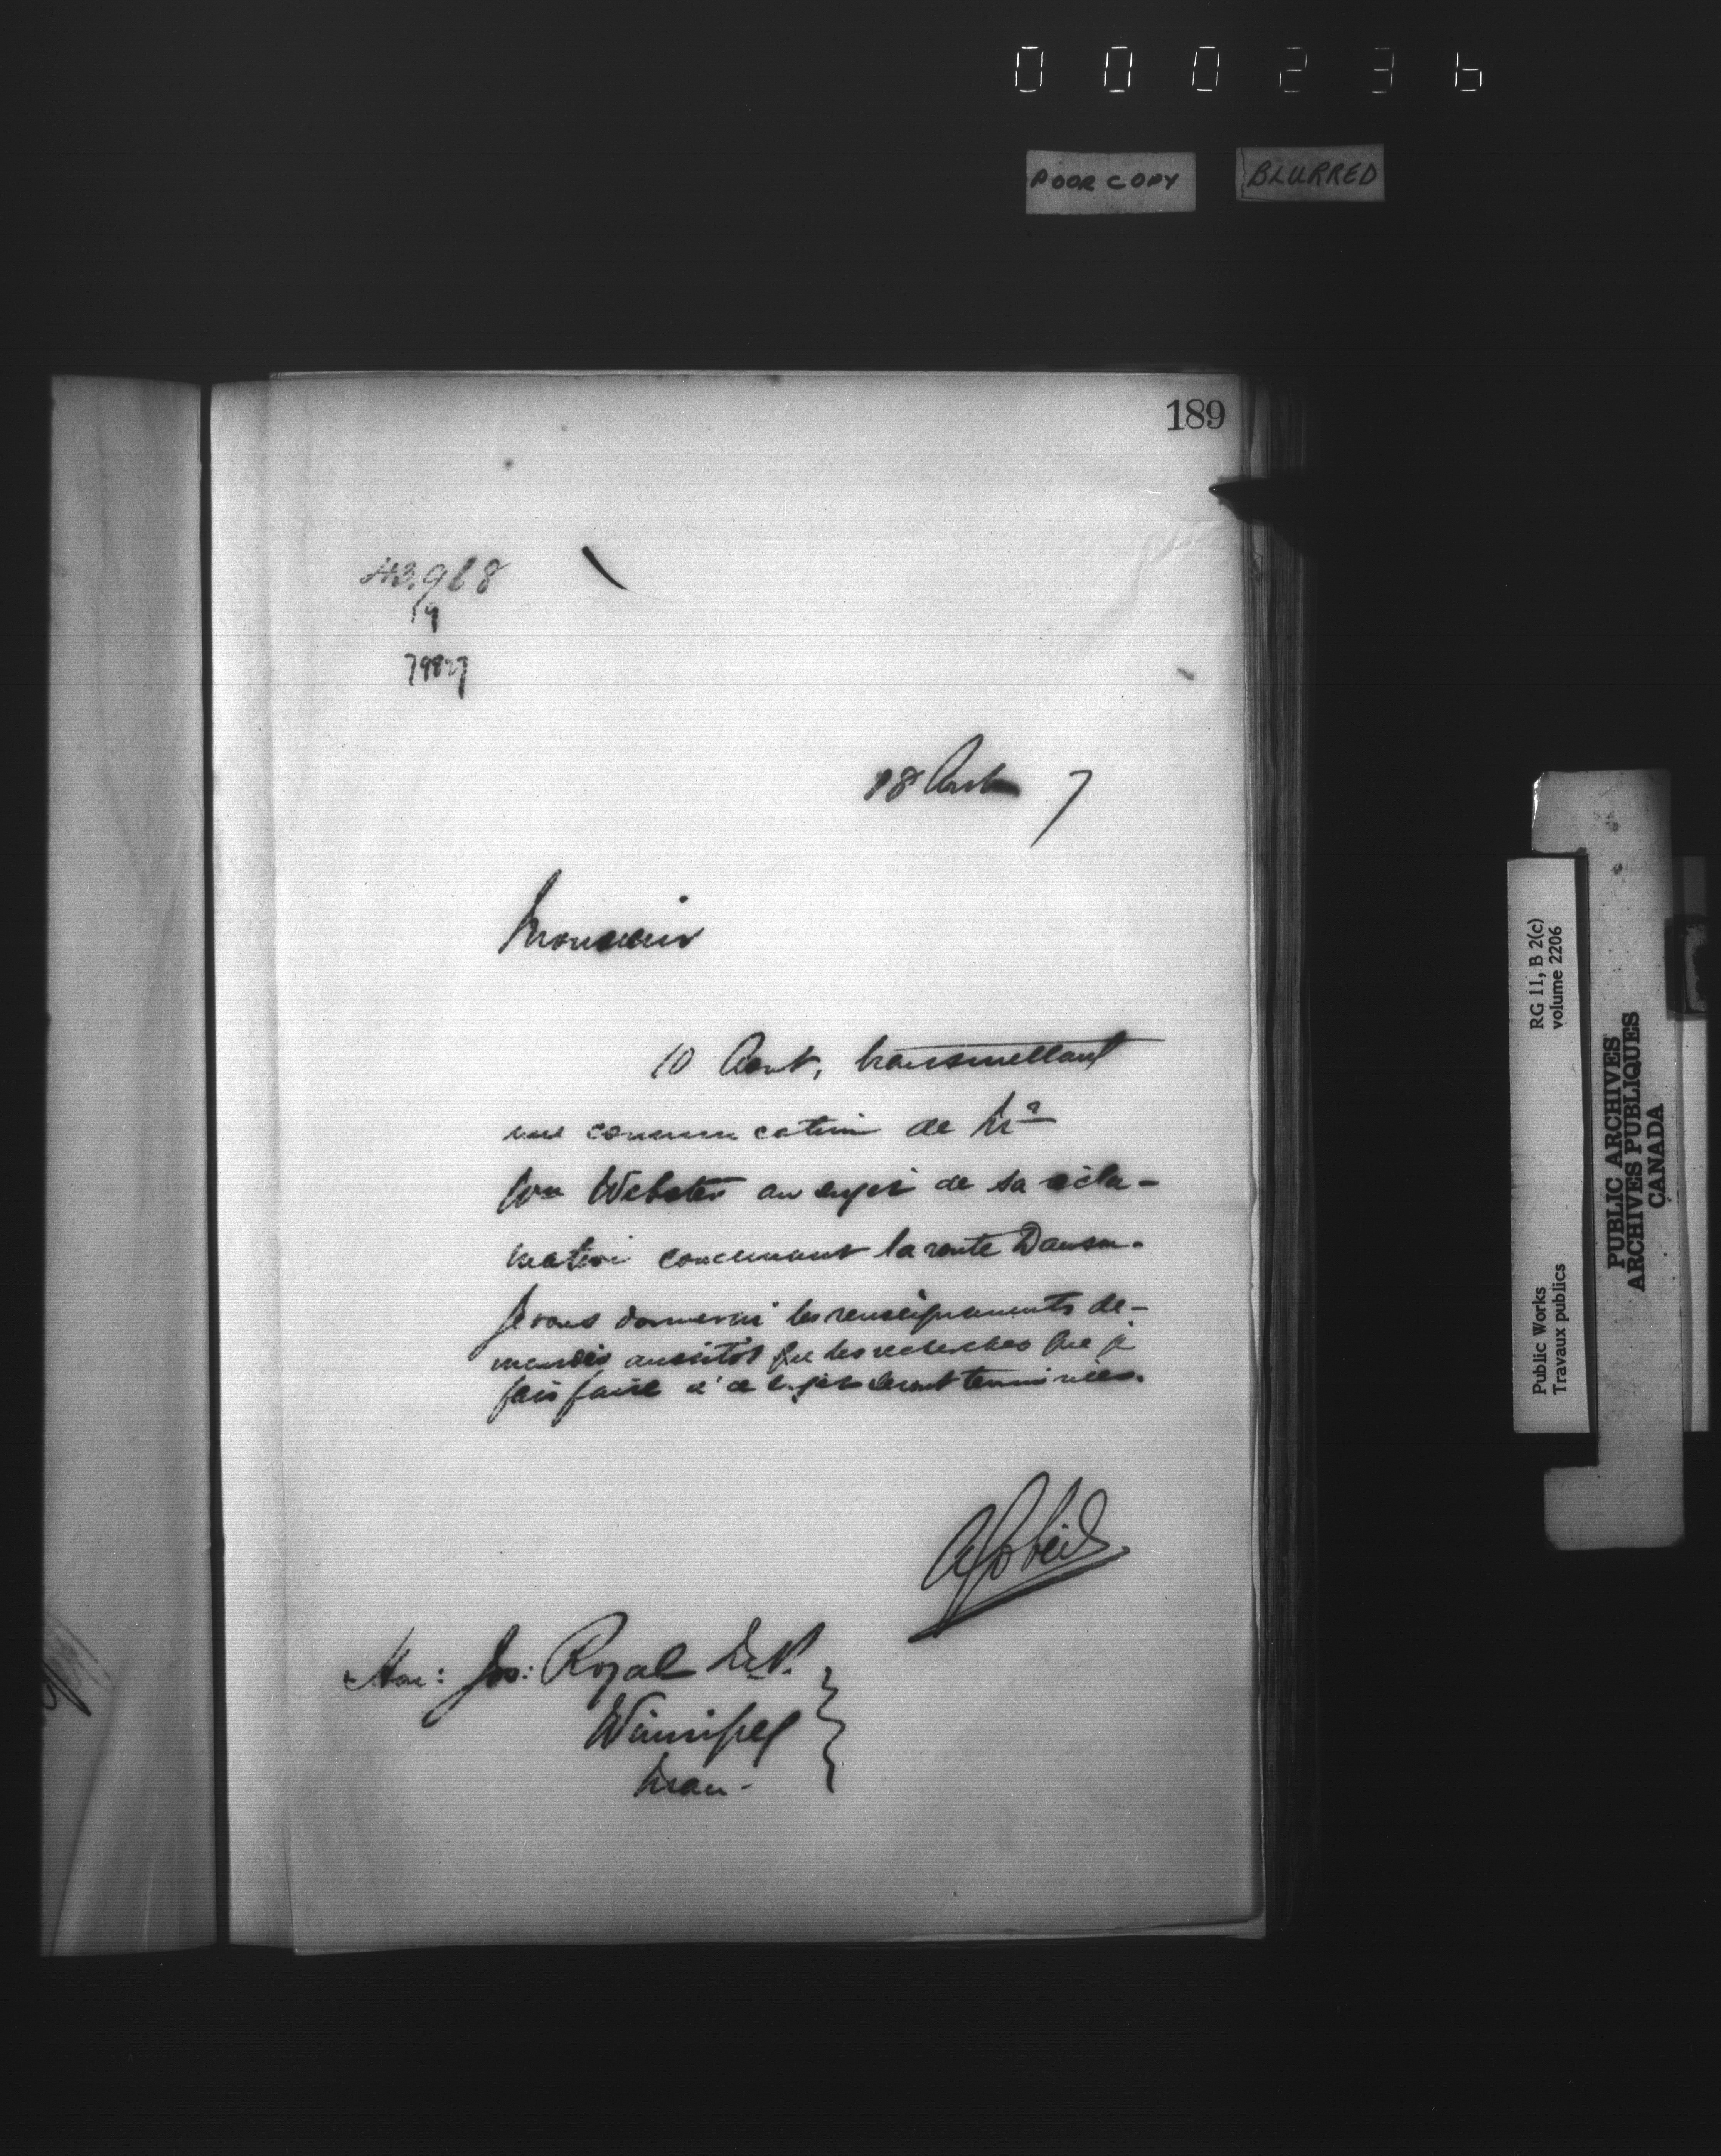 000236
POOR COPY
BLURRED
189
43,968
19
79827
18 Aout 7
Monsieur
10 Aout, transmettant
une communication de Mr
Wm Webster au sujet de sa récla-
mation concernant la route Dawson.
Je vous donnerai les renseignements de-
mandés aussitôt que les recherches que je
fais faire à ce sujet seront terminées.
Hon: Jos: Royal M.P.
Winnipeg
Man.
RG 11, B 2(c)
volume 2206
Public Works
Travaux publics
PUBLIC ARCHIVES
ARCHIVES PUBLIQUES
CANADA